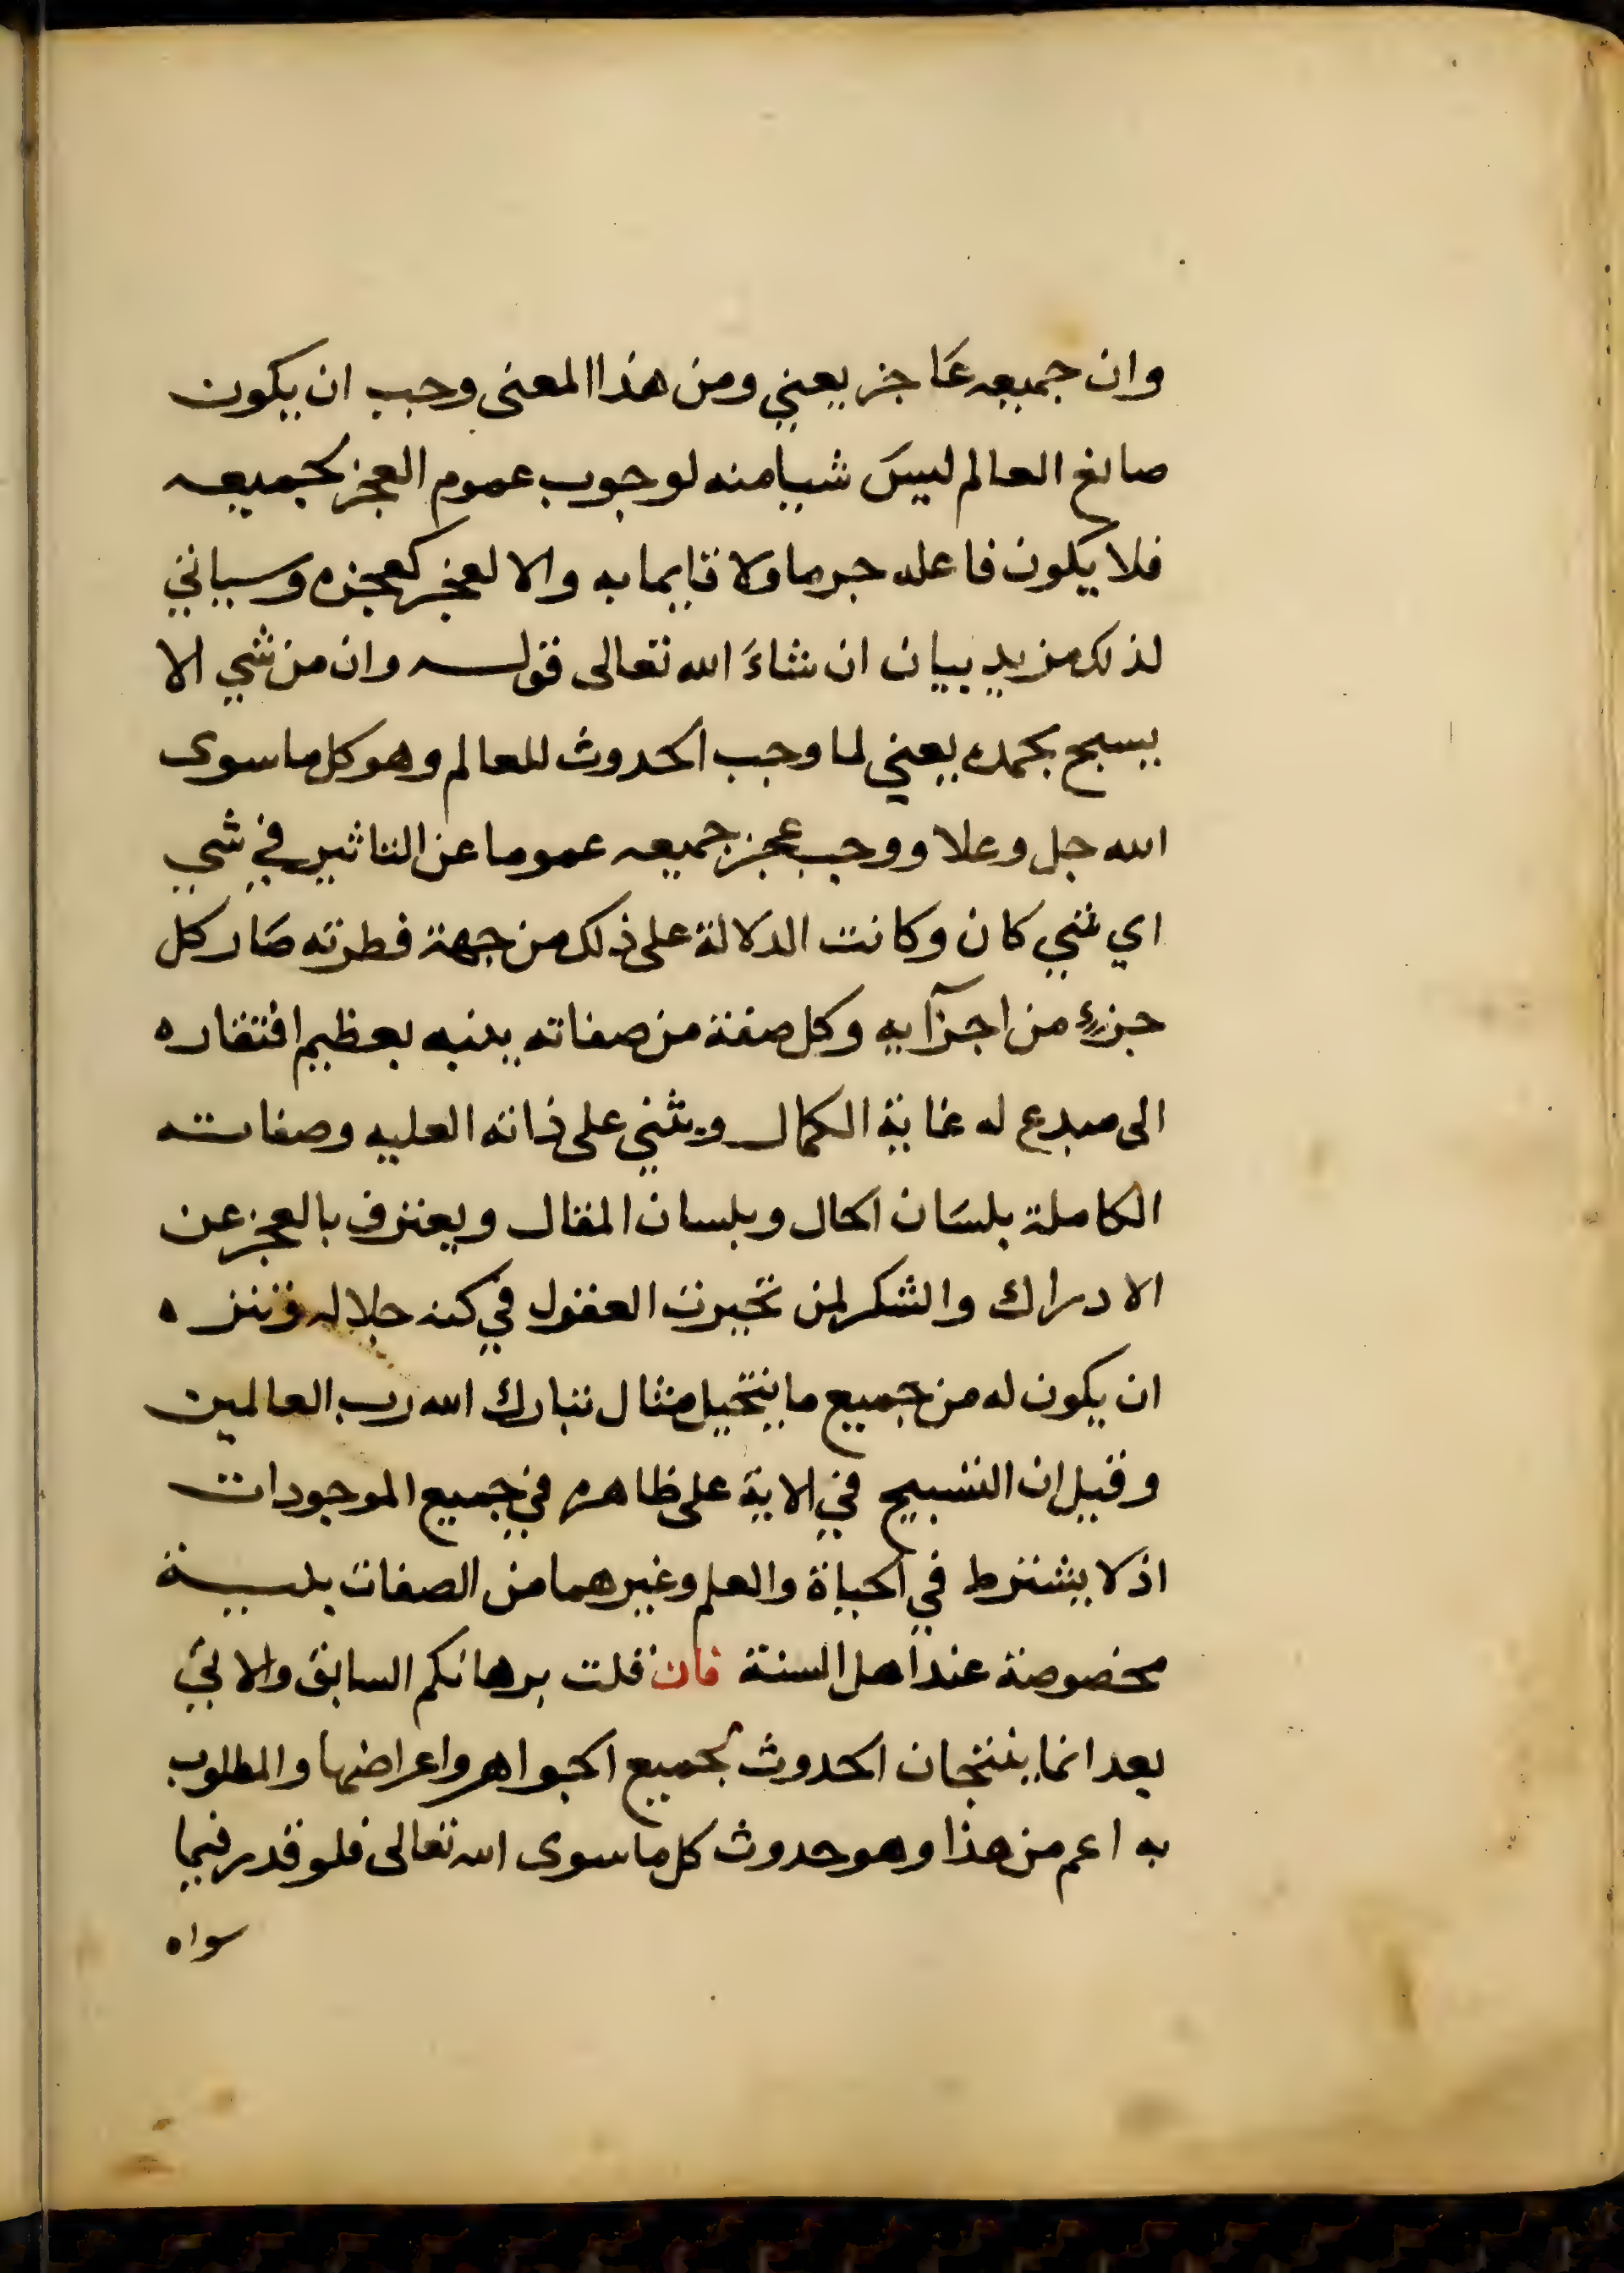 وان جميعه عاجز يعني ومن هذا المعنى وجب ان يكون
صانع العالم ليسَ شيا منه لوجوب عموم العجز لجميعه
فلا يكون فاعله جرما ولا قايما به والا لعجز كعجزه وسياتي
لذلك مزيد بيان ان شاءَ الله تعالى قوله وان من شي الا
يسبح بحمده يعني لما وجب الحدوث للعالم وهو كل ما سوى
الله جل وعلا ووجب عجز جميعه عموما عن التاثير في شي
اي شي كان وكانت الدلالة على ذلك من جهة فطرته صَار كل
جزء من اجزآيه وكل صفة من صفاته ينبه بعظيم افتقاره
الى مبدع له غاية الكمال ويثني على ذاته العليه وصفاته
الكاملة بلسَان الحال وبلسان المقال ويعترف بالعجز عن
الادراك والشكر لمن تحيرت العقول في كنه جلاله وتنزه
ان يكون له من جميع ما يتخيل مثال تبارك الله رب العالمين
وقيل ان التسبيح في الاية على ظاهره في جميع الموجودات
اذ لا يشترط في الحياة والعلم وغيرهما من الصفات بلسة
مخصوصة عند اهل السنة فان قلت برهانكم السابق والاتي
بعد انما ينتجان الحدوث لجميع الجواهر واعراضها والمطلوب
به اعم من هذا وهو حدوث كل ما سوى الله تعالى فلو قدر فيما
سواه